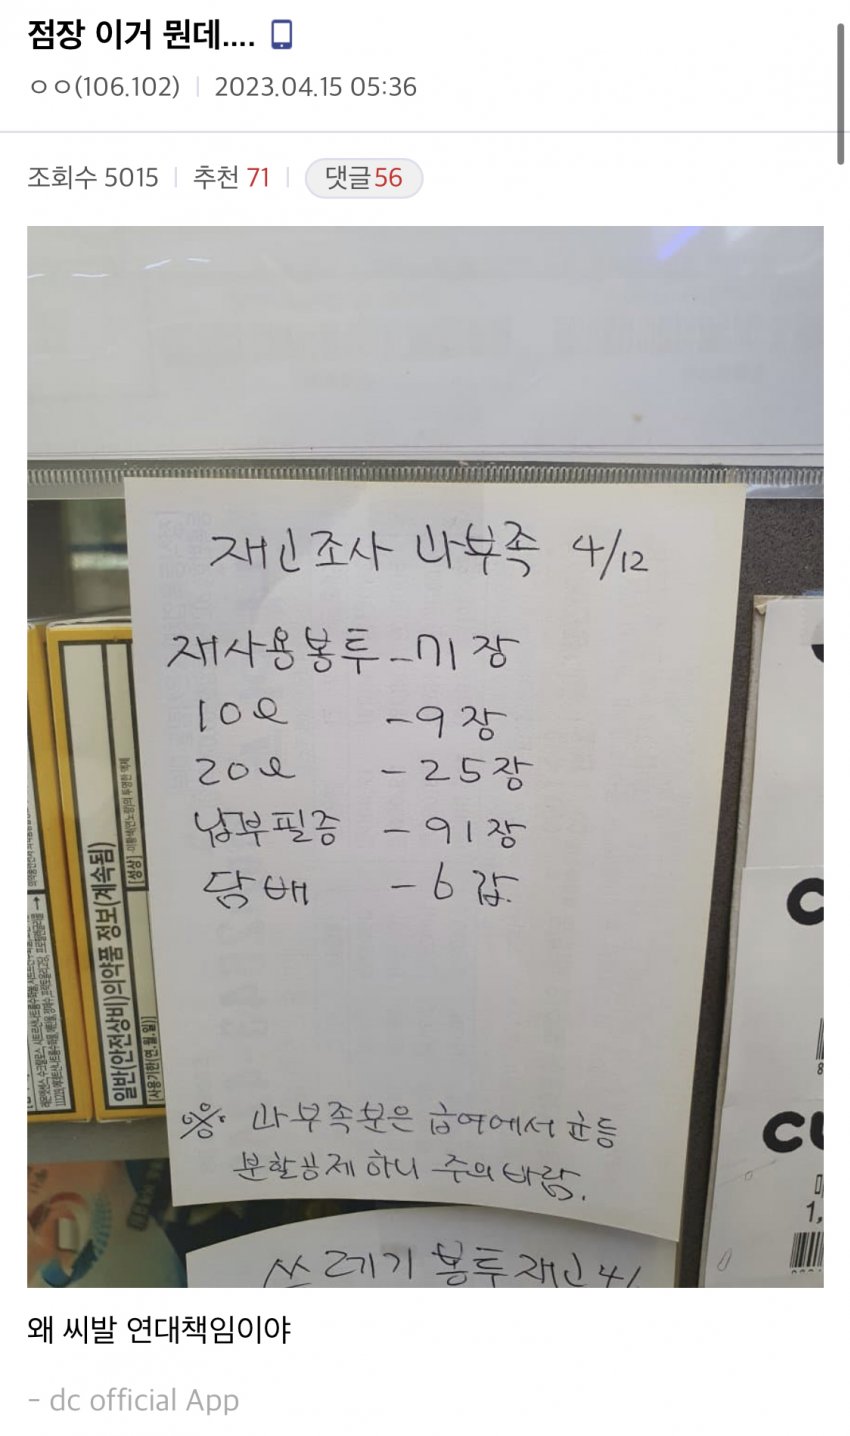 점장 이거 뭔데....
ㅇㅇ(106.102) | 2023.04.15 05:36
조회수 5015 | 추천 71 | 댓글 56
재고조사 과부족 4/12
재사용봉투 -71장
10ℓ -9장
20ℓ -25장
납부필증 -91장
담배 -6갑.
※ 과부족분은 급여에서 균등
분할공제 하니 주의바람.
쓰레기 봉투재고 4/
일반(안전상비)의약품 정보(계속됨)
[사용기한(연.월.일)]
[성상]
CU
1,
왜 씨발 연대책임이야
- dc official App